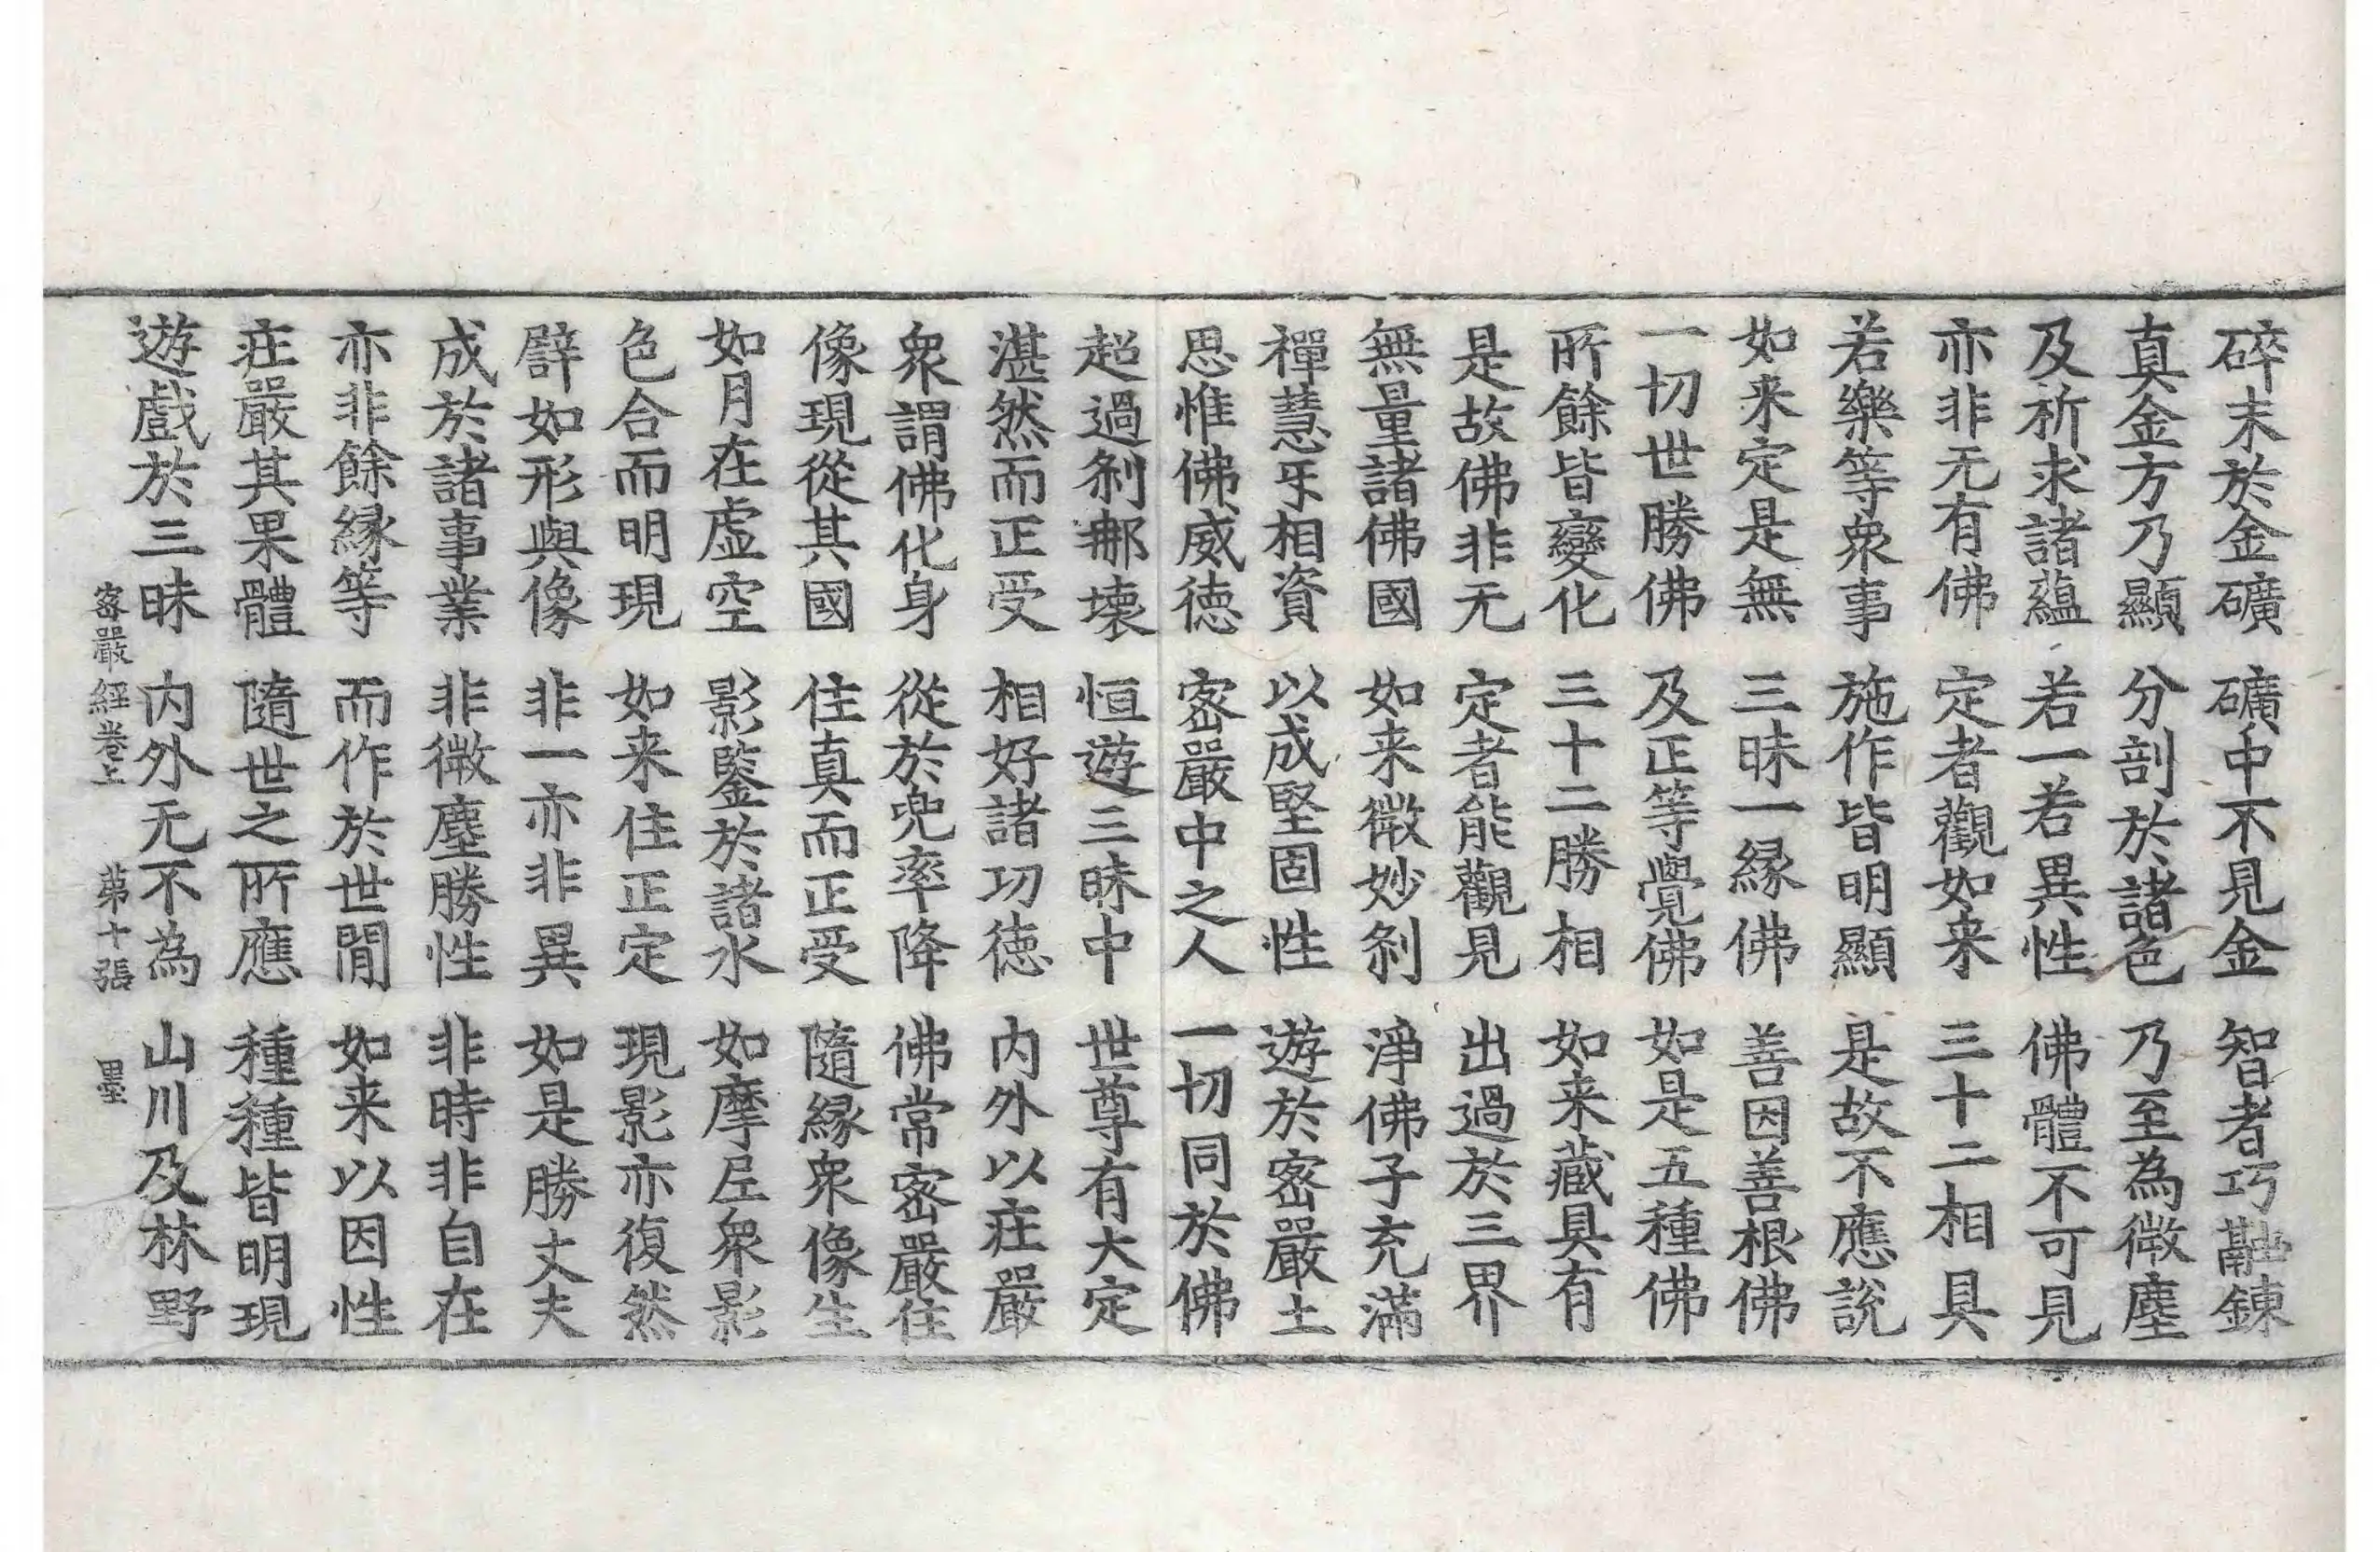 碎末於金礦 礦中不見金 智者巧融鍊
真金方乃顯 分剖於諸色 乃至為微塵
及析求諸蘊 若一若異性 佛體不可見
亦非无有佛 定者觀如来 三十二相具
若樂等衆事 施作皆明顯 是故不應說
如来定是無 三昧一緣佛 善因善根佛
一切世勝佛 及正等覺佛 如是五種佛
所餘皆變化 三十二勝相 如来藏具有
是故佛非无 定者能觀見 出過於三界
無量諸佛國 如来微妙刹 淨佛子充滿
禪慧㸦相資 以成堅固性 遊於密嚴土
思惟佛威德 密嚴中之人 一切同於佛
超過刹那壞 恒遊三昧中 世尊有大定
湛然而正受 相好諸功德 内外以庄嚴
衆謂佛化身 從於兜率降 佛常密嚴住
像現從其國 住真而正受 隨緣衆像生
如月在虛空 影鑒於諸水 如摩尼衆影
色合而明現 如来住正定 現影亦復然
譬如形與像 非一亦非異 如是勝丈夫
成於諸事業 非微塵勝性 非時非自在
亦非餘緣等 而作於世間 如来以因性
庄嚴其果體 隨世之所應 種種皆明現
遊戲於三昧 内外无不為 山川及林野
密嚴經卷上 第十張 墨